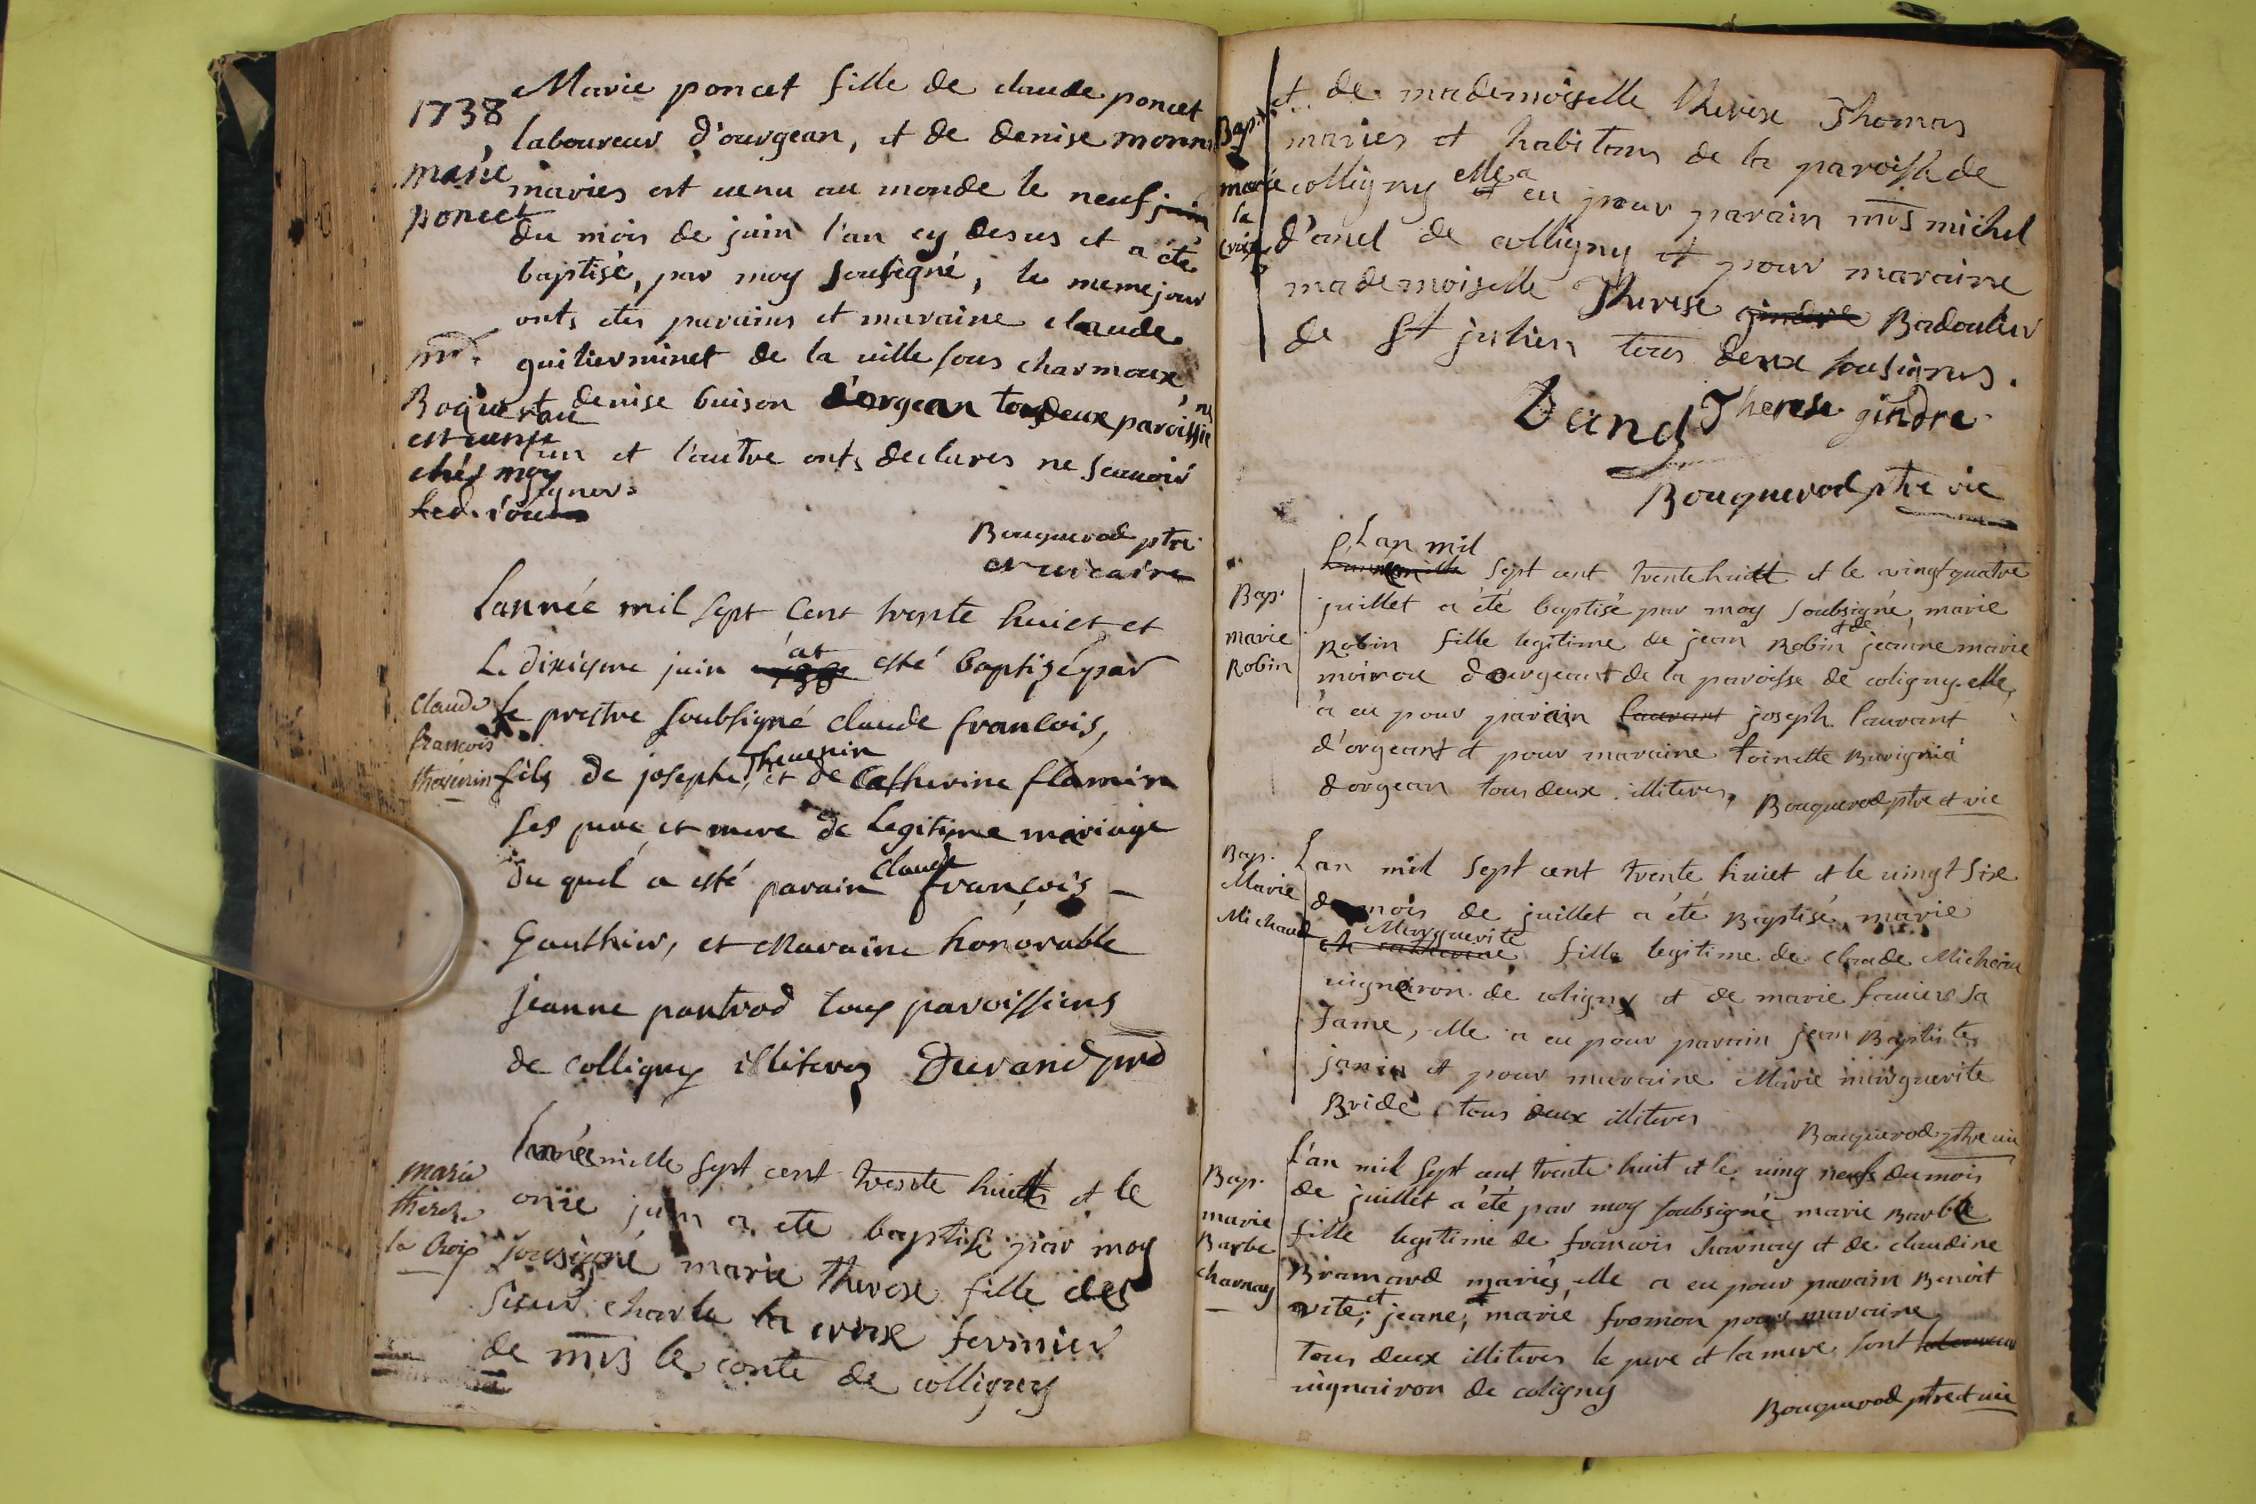 1738
marie
poncet
Marie poncet fille de claude poncet
laboureur d'ourgean, et de denise monn
maries est venu au monde le neuf juin
du mois de juin l'an cy desus et a été
baptisé, par moy soubsigné, le meme jour
onts etes parains et maraine claude
guilierminet de la ville sous charmoux
et denise buison d'orgean tous deux paroissiens
l'un et l'autre onts declares ne scavoir
signer.
mr.
Boquerau
est
chés moy
Bouquerod ptre
et vicaire
Lannée mil sept Cent trente huict et
Le dixiesme juin at esté baptizé par
claude
francois
thevenin
le prestre soubsigné claude francois,
fils de joseph Thevenin, et de Catherine flamin
ses pere et mere de Legitime mariage
du quel a esté parain claude francois
Gauthier, et Maraine honorable
jeanne pantrod tous paroissiens
de colligny illiteres Durand prd
marie
therese
la Croix
Lannée mille sept cent trente huitt et le
onze juin a ete baptisé par moy
sousigné marie therese fille des
sieur charle la croix fermier
de mrs le conte de colligny
Bap.
marie
la
croix
et de mademoiselle therese Thomas
maries et habitans de la paroisse de
colligny elle a eu pour parain mrs michel
d'anel de colligny et pour maraine
mademoiselle Therese gindre Badoulier
de St julien tous deux sousignes.
Dand Therese gindre
Bouquerod ptre vic
Bap.
marie
Robin
Lan mil
sept cent trente huitt et le vingt quatre
juillet a été baptisé par moy soubsigné, marie
Robin fille legitime de jean Robin et de jeanne marie
moirou dourgeant de la paroisse de coligny. elle
a eu pour parain laurant joseph laurant
d'orgeant et pour maraine toinette Buvignia
dorgean tous deux illiteres, Bouquerod ptre et vic
Bap.
Marie
Michaud
Lan mil sept cent trente huict et le vingt six
du mois de juillet a été Baptisé marie
Marguerite fille legitime de claude Michau
vigneron de coligny et de marie favier sa
fame, elle a eu pour parain jean Baptiste
janin et pour maraine Marie marguerite
Bridé tous deux illiteres
Bouquerod ptre vic
Bap.
marie
Barbe
charnay
L'an mil sept cent trente huit et le ving neufs du mois
de juillet a été par moy soubsigné marie Barbe
fille legitime de francois charnay et de claudine
Bramard mariés, elle a eu pour parain Benoit
vite, et jeane, marie fromon pour maraine
tous deux illiteres le pere et la mere sont laboureur
vignairon de coligny
Bouquerod ptre et vic